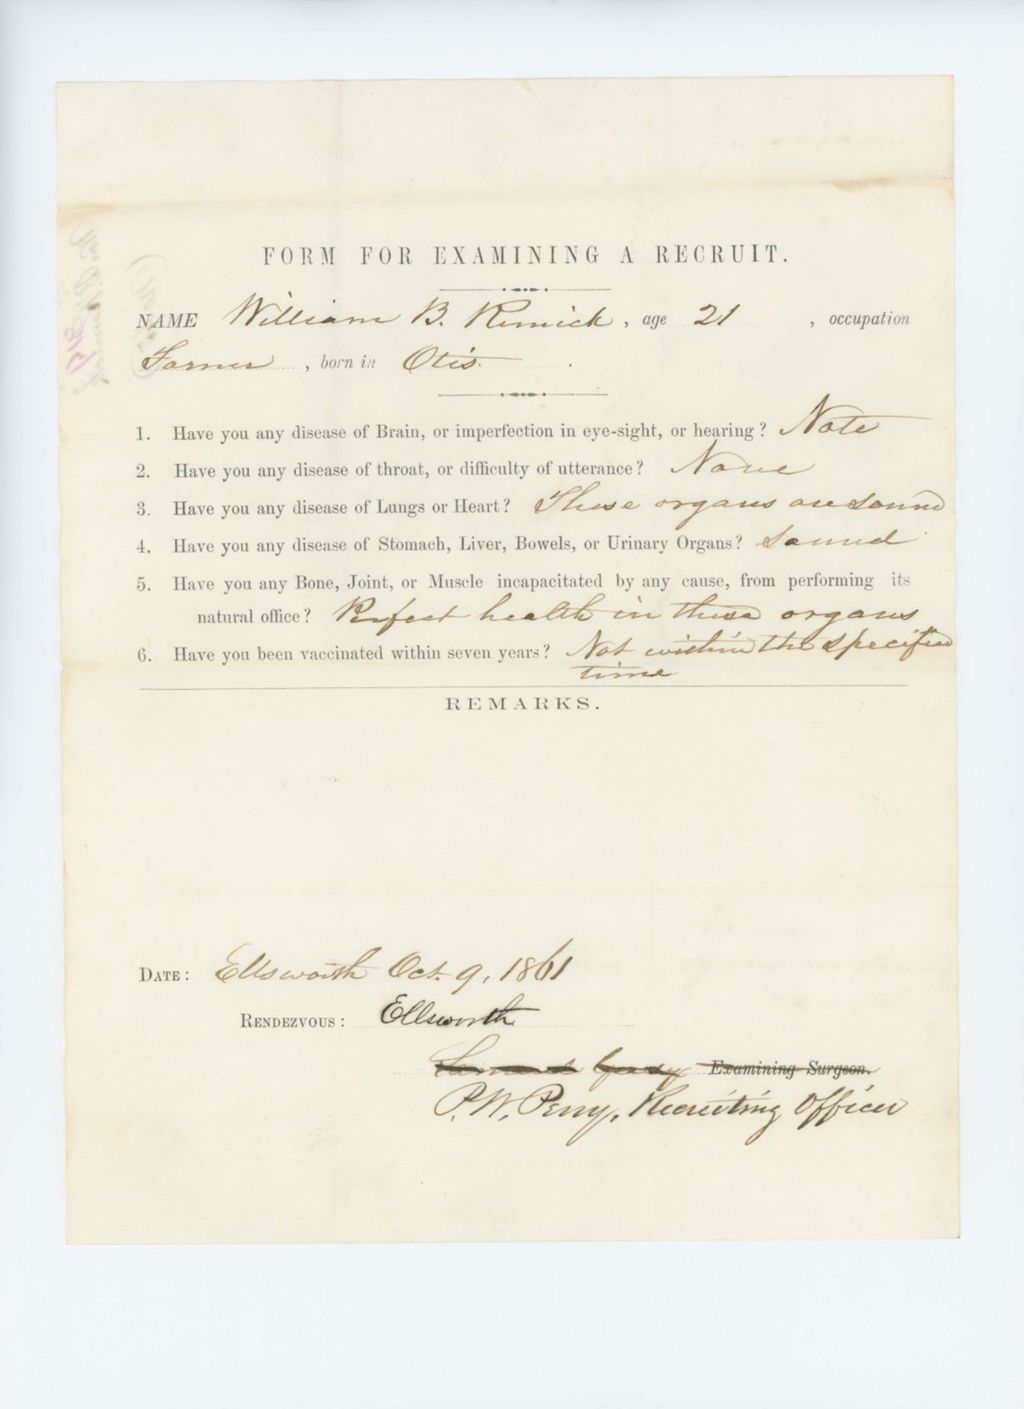 FORM FOR EXAMINING A RECRUIT.
NAME William B. Remick, age 21, occupation
Farmer, born in Otis.
1. Have you any disease of Brain, or imperfection in eye-sight, or hearing? Note
2. Have you any disease of throat, or difficulty of utterance? None
3. Have you any disease of Lungs or Heart? These organs are sound
4. Have you any disease of Stomach, Liver, Bowels, or Urinary Organs? Sound
5. Have you any Bone, Joint, or Muscle incapacitated by any cause, from performing its
natural office? Perfect health in these organs
6. Have you been vaccinated within seven years? Not within the specified
time
REMARKS.
DATE: Ellsworth Oct. 9, 1861
RENDEZVOUS: Ellsworth
Examining Surgeon.
P. W. Perry, Recruiting Officer